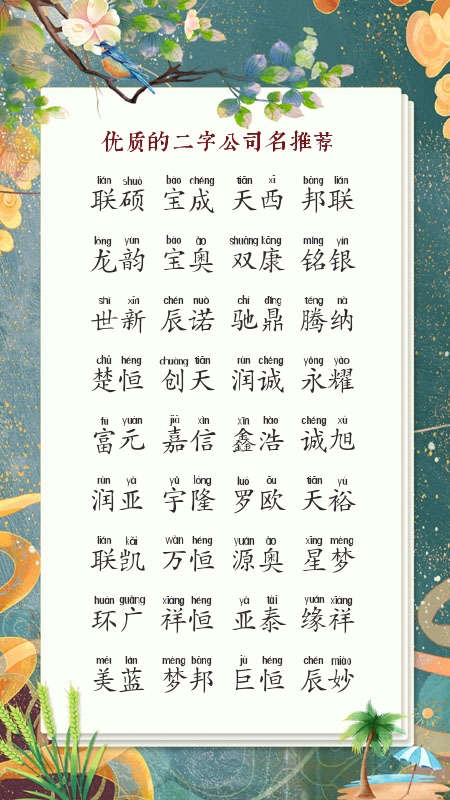 优质的二字公司名推荐
lián shuò bǎo chéng tiān xī bāng lián
联硕 宝成 天西 邦联
lóng yùn bǎo ào shuāng kāng míng yín
龙韵 宝奥 双康 铭银
shì xīn chén nuò chí dǐng téng nà
世新 辰诺 驰鼎 腾纳
chǔ héng chuàng tiān rùn chéng yǒng yào
楚恒 创天 润诚 永耀
fù yuán jiā xìn xīn hào chéng xù
富元 嘉信 鑫浩 诚旭
rùn yà yǔ lóng luó ōu tiān yù
润亚 宇隆 罗欧 天裕
lián kǎi wàn héng yuán ào xīng mèng
联凯 万恒 源奥 星梦
huán guǎng xiáng héng yà tài yuán xiáng
环广 祥恒 亚泰 缘祥
měi lán mèng bāng jù héng chén miào
美蓝 梦邦 巨恒 辰妙